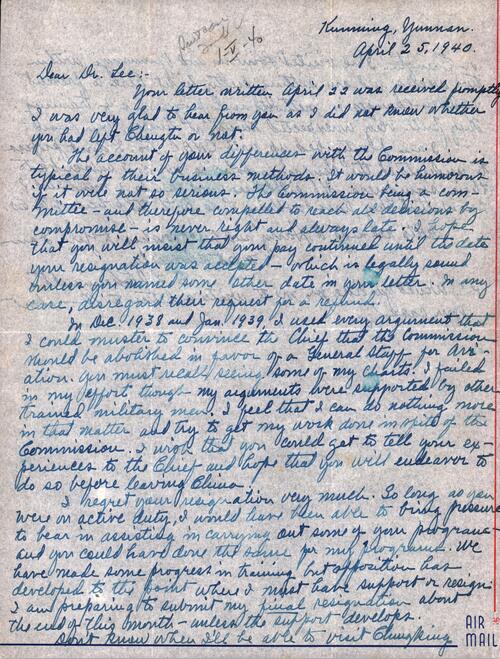 Kunming, Yunnan.
April 25, 1940.
1-V-40
Dear Dr. Lee:-
Your letter written April 22 was received promptly
I was very glad to hear from you as I did not know whether
you had left Chengtu or not.
The account of your differences with the Commission is
typical of their business methods. It would be humorous
if it were not so serious. The Commission being a com-
mittee - and therefore compelled to reach all decisions by
compromise - is never right and always late. I hope
that you will insist that your pay continued until the date
your resignation was accepted - which is legally sound
unless you named some other date in your letter. In any
case, disregard their request for a refund.
In Dec. 1938 and Jan. 1939, I used every argument that
I could muster to convince the Chief that the Commission
should be abolished in favor of a General Staff for Avi-
ation. You must recall seeing some of my charts. I failed
in my effort though my arguments were supported by other
trained military men. I feel that I can do nothing more
in that matter and try to get my work done in spite of the
Commission. I wish that you could get to tell your ex-
periences to the Chief and hope that you will endeavor to
do so before leaving China.
I regret your resignation very much. So long as you
were on active duty, I would have been able to bring pressure
to bear in assisting in carrying out some of your programs
and you could have done the same for my programs. We
have made some progress in training but opposition has
developed to the point where I must have support or resign.
I am preparing to submit my final resignation about
the end of this month - unless the support develops.
Don't know when I'll be able to visit Chungking
AIR
MAIL